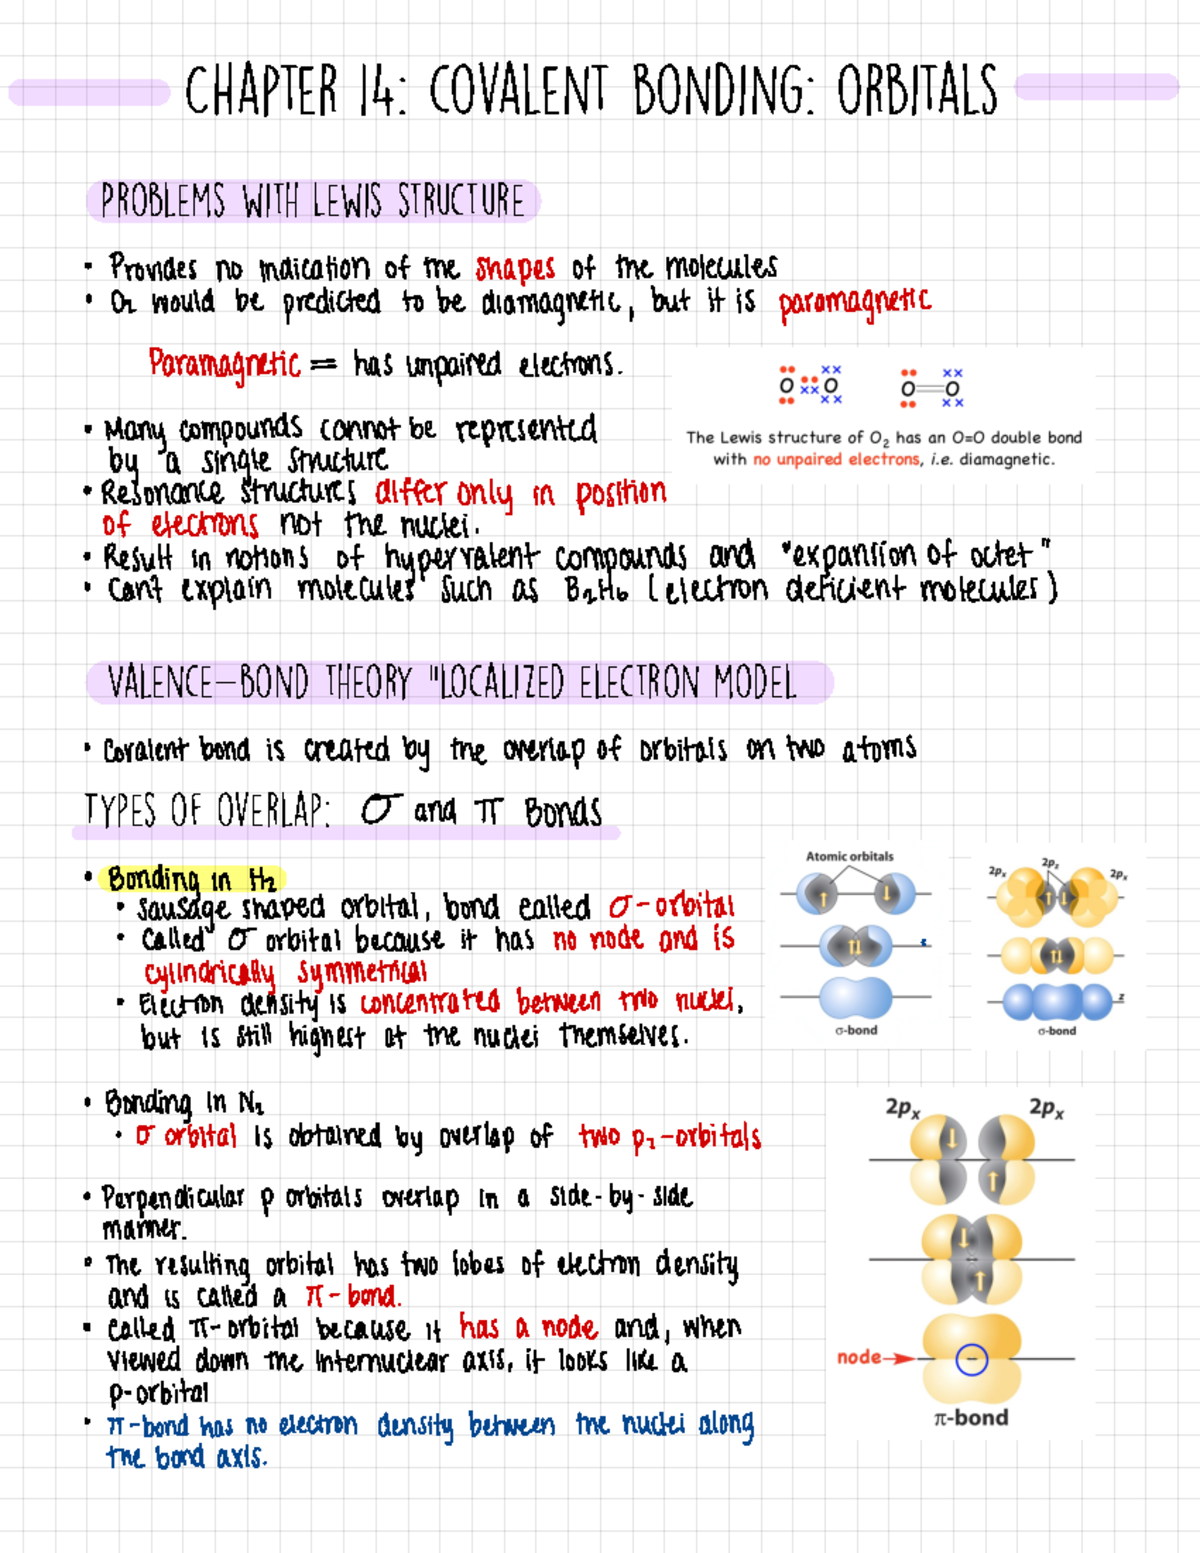 CHAPTER 14: COVALENT BONDING: ORBITALS
PROBLEMS WITH LEWIS STRUCTURE
• Provides no indication of the shapes of the molecules
• O₂ would be predicted to be diamagnetic, but it is paramagnetic
Paramagnetic = has unpaired electrons.
O O O=O
The Lewis structure of O₂ has an O=O double bond
with no unpaired electrons, i.e. diamagnetic.
• Many compounds cannot be represented
by a single structure
• Resonance structures differ only in position
of electrons not the nuclei.
• Result in notions of hypervalent compounds and "expansion of octet"
• Can't explain molecules such as B₂H₆ (electron deficient molecules)
VALENCE-BOND THEORY "LOCALIZED ELECTRON MODEL
• Covalent bond is created by the overlap of orbitals on two atoms
TYPES OF OVERLAP: σ and π Bonds
• Bonding in H₂
• Sausage shaped orbital, bond called σ-orbital
• Called σ orbital because it has no node and is
cylindrically symmetrical
• Electron density is concentrated between two nuclei,
but is still highest at the nuclei themselves.
Atomic orbitals
σ-bond
2pₓ 2p_z 2pₓ
z
σ-bond
• Bonding in N₂
• σ orbital is obtained by overlap of two p_z-orbitals
• Perpendicular p orbitals overlap in a side-by-side
manner.
• The resulting orbital has two lobes of electron density
and is called a π-bond.
• Called π-orbital because it has a node and, when
viewed down the internuclear axis, it looks like a
p-orbital
• π-bond has no electron density between the nuclei along
the bond axis.
2pₓ 2pₓ
node
π-bond